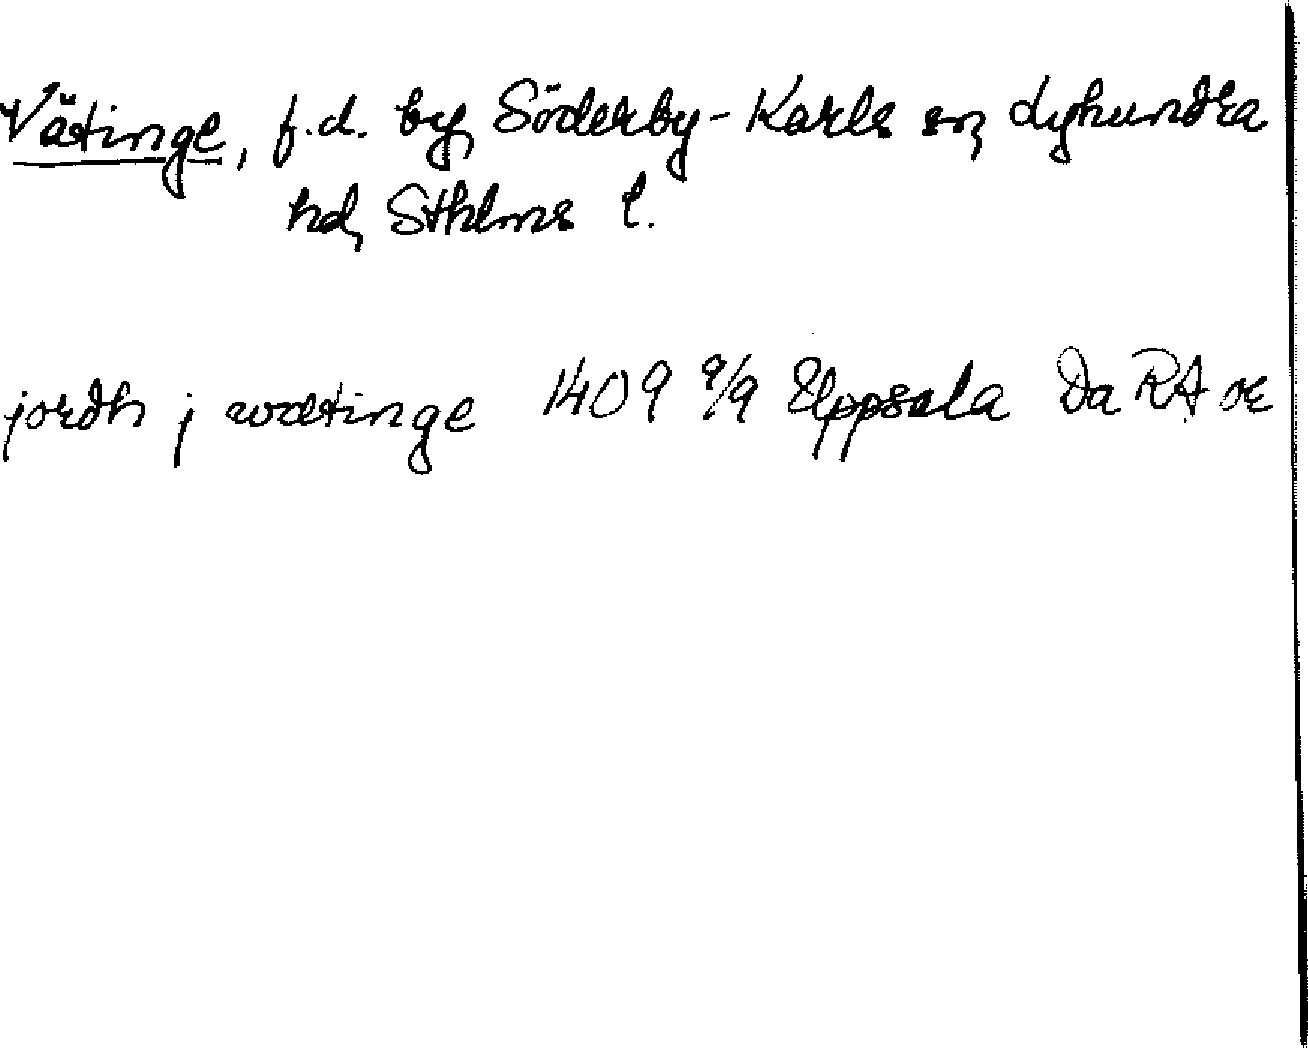 Vätinge, f.d. by, Söderby-Karls sn, Lyhundra
hd, Sthlms l.
jordh j wætinge 1409 9/9 Uppsala Da RA or